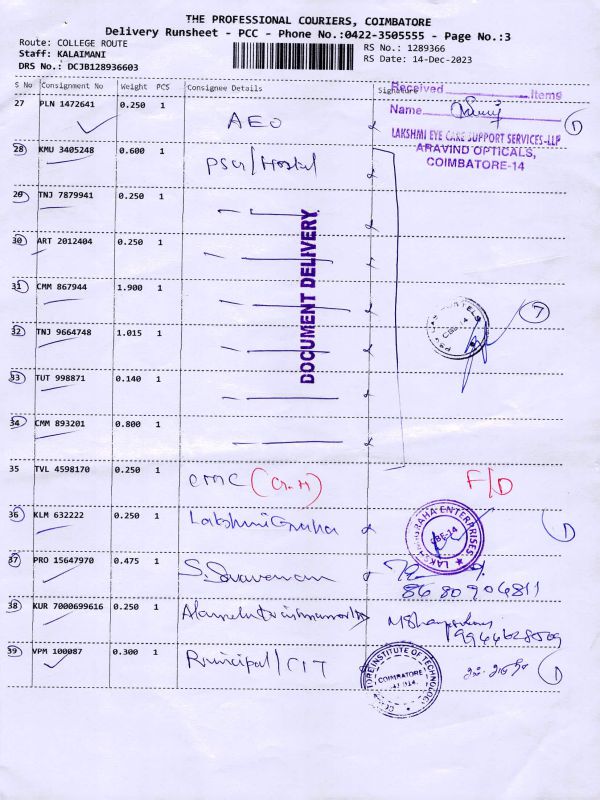 THE PROFESSIONAL COURIERS, COIMBATORE
Delivery Runsheet - PCC - Phone No.:0422-3505555 - Page No.:3
Route: COLLEGE ROUTE
Staff: KALAIMANI
DRS No.: DCJB128936603
RS No.: 1289366
RS Date: 14-Dec-2023
S No Consignment No Weight PCS Consignee Details Signature
Received Items
Name
LAKSHMI EYE CARE SUPPORT SERVICES-LLP
ARAVIND OPTICALS,
COIMBATORE-14
27 PLN 1472641 0.250 1 AEO D
28 KMU 3405248 0.600 1 PSG/Hostel
29 TNJ 7879941 0.250 1
30 ART 2012404 0.250 1
31 CMM 867944 1.900 1 7
32 TNJ 9664748 1.015 1
33 TUT 998871 0.140 1
34 CMM 893201 0.800 1
DOCUMENT DELIVERY
35 TVL 4598170 0.250 1 CMC (Cr.M) F/D
36 KLM 632222 0.250 1 Lakshmi Graha D
ENTERPRISES
CBE-14
37 PRO 15647970 0.475 1 S. Saravanan
8680906811
38 KUR 7000699616 0.250 1
39 VPM 100087 0.300 1 Principal/CIT D
INSTITUTE OF TECHNOLOGY
COIMBATORE